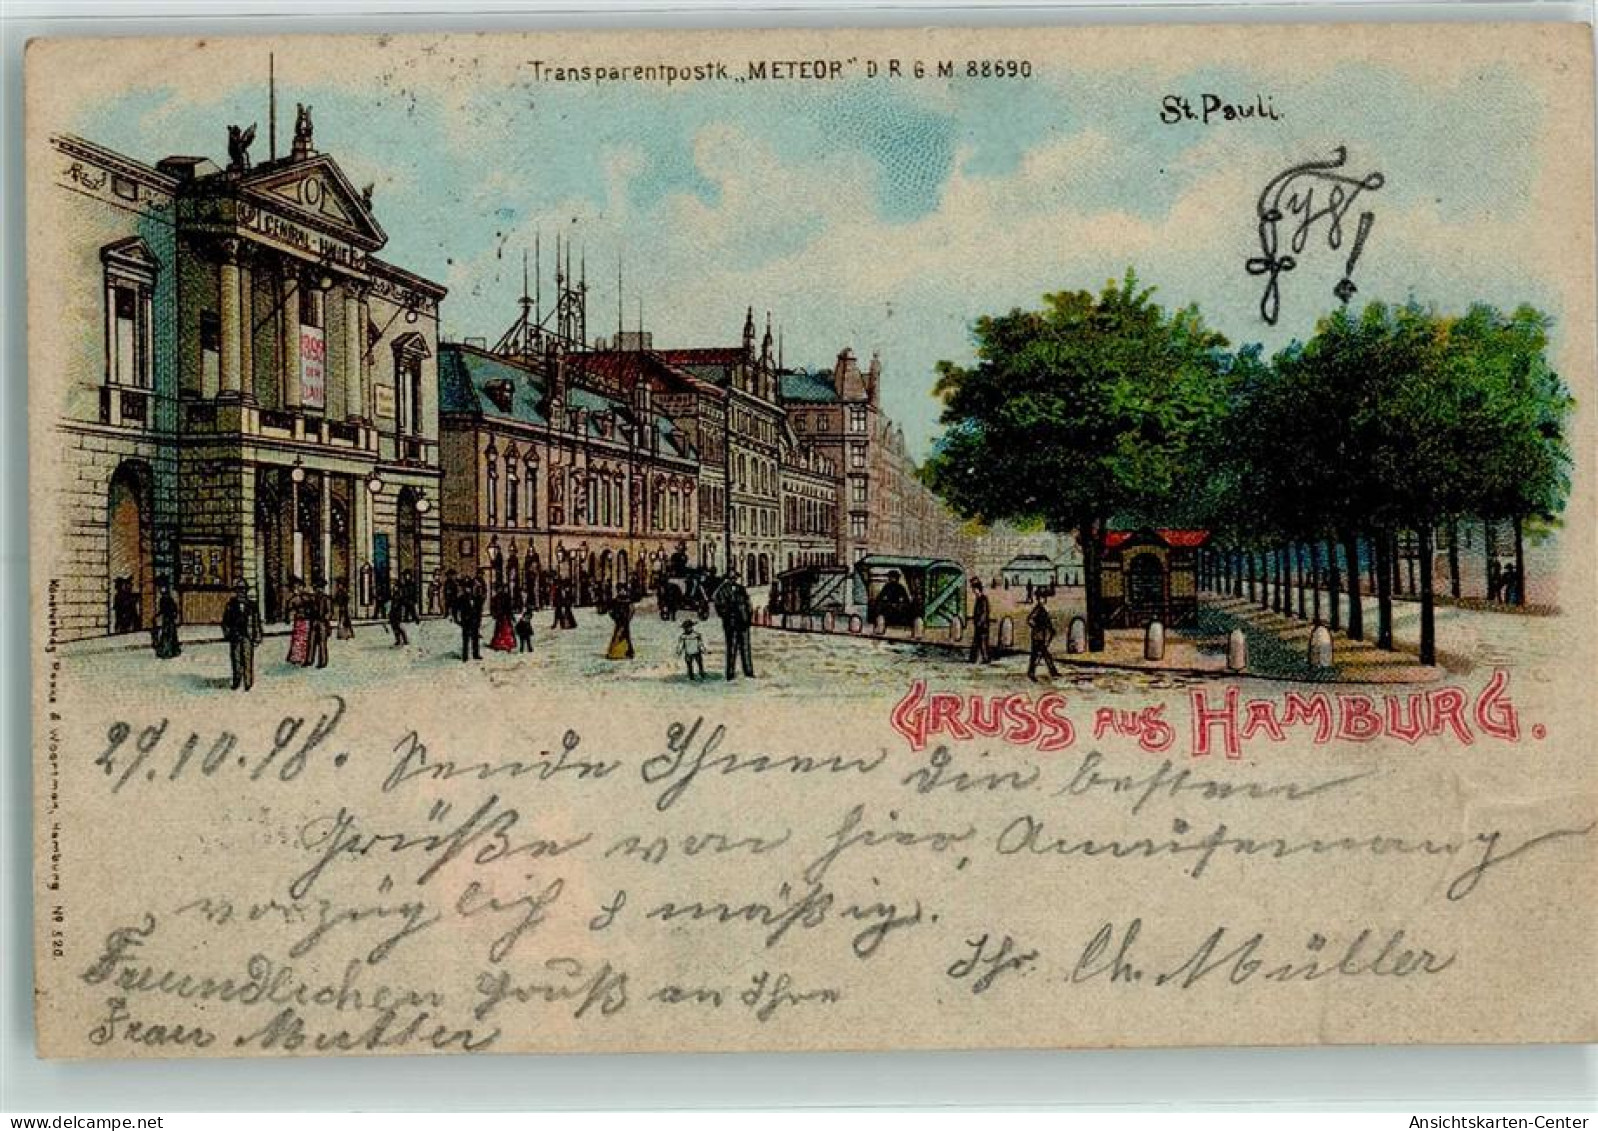 Transparentpostk. „METEOR" D.R.G.M. 88690
St. Pauli.
CENTRAL-HALLE
GRUSS AUS HAMBURG.
29.10.98. Sende Ihnen die besten
Grüße von hier, Amüsemang
vorzüglich & mäßig.
Ihr Ch. Müller
Freundlichen Gruß an Ihre
Frau Mutter
Kunstverlag Rosenblatt, Hamburg Nº 520
Ansichtskarten-Center